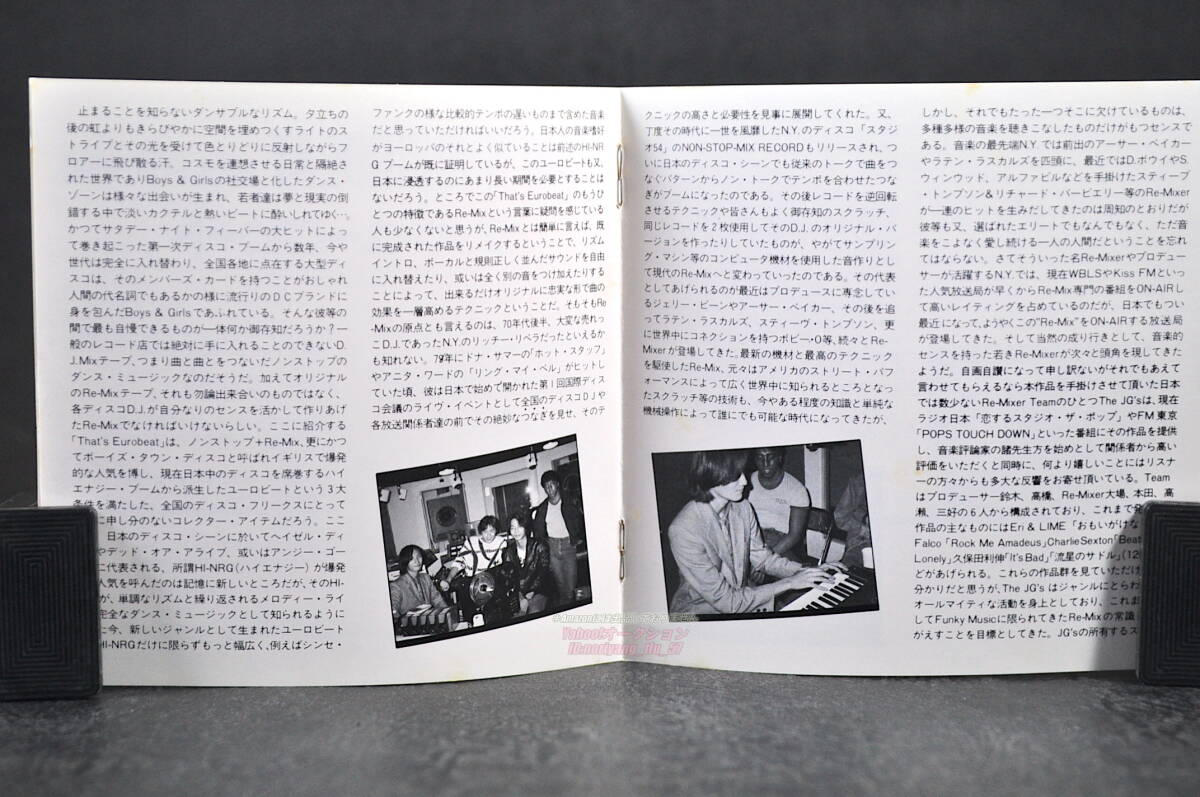 止まることを知らないダンサブルなリズム。夕立ちの
後の虹よりもきらびやかに空間を埋めつくすライトのス
トライプとその光を受けて色とりどりに反射しながらフ
ロアーに飛び散る汗。コスモを連想させる日常と隔絶さ
れた世界でありBoys & Girlsの社交場と化したダンス・
ゾーンは様々な出会いが生まれ、若者達は夢と現実の倒
錯する中で淡いカクテルと熱いビートに酔いしれてゆく…。
かつてサタデー・ナイト・フィーバーの大ヒットによっ
て巻き起こった第一次ディスコ・ブームから数年、今や
世代は完全に入れ替わり、全国各地に点在する大型ディ
スコは、そのメンバーズ・カードを持つことがおしゃれ
人間の代名詞でもあるかの様に流行りのDCブランドに
身を包んだBoys & Girlsであふれている。そんな彼等の
間で最も自慢できるものが一体何か御存知だろうか？一
般のレコード店では絶対に手に入れることのできないD.
J.Mixテープ、つまり曲と曲とをつないだノンストップの
ダンス・ミュージックなのだそうだ。加えてオリジナル
のRe-Mixテープ、それも勿論出来合いのものではなく、
各ディスコD.J.が自分なりのセンスを活かして作りあげ
たRe-Mixでなければいけないらしい。ここに紹介する
「That's Eurobeat」は、ノンストップ+Re-Mix、更にかつ
てボーイズ・タウン・ディスコと呼ばれイギリスで爆発
的な人気を博し、現在日本中のディスコを席巻するハイ
エナジー・ブームから派生したユーロビートという3大
条件を満たした、全国のディスコ・フリークスにとって
に申し分のないコレクター・アイテムだろう。ここ
日本のディスコ・シーンに於いてヘイゼル・ディ
やデッド・オア・アライブ、或いはアンジー・ゴー
に代表される、所謂HI-NRG(ハイエナジー)が爆発
人気を呼んだのは記憶に新しいところだが、そのHI-
が、単調なリズムと繰り返されるメロディー・ライ
完全なダンス・ミュージックとして知られるように
た今、新しいジャンルとして生まれたユーロビート
HI-NRGだけに限らずもっと幅広く、例えばシンセ・
ファンクの様な比較的テンポの遅いものまで含めた音楽
だと思っていただければいいだろう。日本人の音楽嗜好
がヨーロッパのそれとよく似ていることは前述のHI-NR
G ブームが既に証明しているが、このユーロビートも又、
日本に浸透するのにあまり長い期間を必要とすることは
ないだろう。ところでこの「That's Eurobeat」のもうひ
とつの特徴であるRe-Mixという言葉に疑問を感じている
人も少なくないと思うが、Re-Mixとは簡単に言えば、既
に完成された作品をリメイクするということで、リズム
イントロ、ボーカルと規則正しく並んだサウンドを自由
に入れ替えたり、或いは全く別の音をつけ加えたりする
ことによって、出来るだけオリジナルに忠実な形で曲の
効果を一層高めるテクニックということだ。そもそもRe
-Mixの原点とも言えるのは、70年代後半、大変な売れっ
こD.J.であったN.Y.のリッチー・リベラだったといえるか
も知れない。79年にドナ・サマーの「ホット・スタッフ」
やアニタ・ワードの「リング・マイ・ベル」がヒットし
ていた頃、彼は日本で始めて開かれた第1回国際ディス
コ会議のライヴ・イベントとして全国のディスコDJや
各放送関係者達の前でその絶妙なつなぎを見せ、そのテ
クニックの高さと必要性を見事に展開してくれた。又、
丁度その時代に一世を風靡したN.Y.のディスコ「スタジ
オ54」のNON-STOP-MIX RECORDもリリースされ、つ
いに日本のディスコ・シーンでも従来のトークで曲をつ
なぐパターンからノン・トークでテンポを合わせたつな
ぎがブームになったのである。その後レコードを逆回転
させるテクニックや皆さんもよく御存知のスクラッチ、
同じレコードを2枚使用してそのD.J.のオリジナル・バ
ージョンを作ったりしていたものが、やがてサンプリン
グ・マシン等のコンピュータ機材を使用した音作りとし
て現代のRe-Mixへと変わっていったのである。その代表
としてあげられるのが最近はプロデュースに専念してい
るジェリー・ビーンやアーサー・ベイカー、その後を追
ってラテン・ラスカルズ、スティーヴ・トンプソン、更
に世界中にコネクションを持つボビー・O等、続々とRe-
Mixerが登場してきた。最新の機材と最高のテクニック
を駆使したRe-Mix、元々はアメリカのストリート・パフ
ォーマンスによって広く世界中に知られるところとなっ
たスクラッチ等の技術も、今やある程度の知識と単純な
機械操作によって誰にでも可能な時代になってきたが、
しかし、それでもたった一つそこに欠けているものは、
多種多様の音楽を聴きこなしたものだけがもつセンスで
ある。音楽の最先端N.Y.では前出のアーサー・ベイカー
やラテン・ラスカルズを匹頭に、最近ではD.ボウイやS.
ウィンウッド、アルファビルなどを手掛けたスティーブ
・トンプソン&リチャード・バービエリー等のRe-Mixer
が一連のヒットを生みだしてきたのは周知のとおりだが
彼等も又、選ばれたエリートでもなんでもなく、ただ音
楽をこよなく愛し続ける一人の人間だということを忘れ
てはならない。さてそういった名Re-Mixerやプロデュー
サーが活躍するN.Y.では、現在WBLSやKiss FMといっ
た人気放送局が早くからRe-Mix専門の番組をON-AIRし
て高いレイティングを占めているのだが、日本でもつい
最近になって、ようやくこの"Re-Mix"をON-AIRする放送局
が登場してきた。そして当然の成り行きとして、音楽的
センスを持った若きRe-Mixerが次々と頭角を現してきた
ようだ。自画自讃になって申し訳ないがそれでもあえて
言わせてもらえるなら本作品を手掛けさせて頂いた日本
では数少ないRe-Mixer TeamのひとつThe JG'sは、現在
ラジオ日本「恋するスタジオ・ザ・ポップ」やFM東京
「POPS TOUCH DOWN」といった番組にその作品を提供
し、音楽評論家の諸先生方を始めとして関係者から高い
評価をいただくと同時に、何より嬉しいことにはリスナ
ーの方々からも多大な反響をお寄せ頂いている。Team
はプロデューサー鈴木、高橋、Re-Mixer大場、本田、高
瀬、三好の6人から構成されており、これまで発
作品の主なものにはEri & LIME「おもいがけな
Falco「Rock Me Amadeus」CharlieSexton「Beat
Lonely」久保田利伸「It's Bad」「流星のサドル」(12
どがあげられる。これらの作品群を見ていただけ
分かりだと思うが、The JG'sはジャンルにとらわ
オールマイティな活動を身上としており、これま
してFunky Musicに限られてきたRe-Mixの常識
がえすことを目標としてきた。JG'sの所有するス
Yahoo!オークション